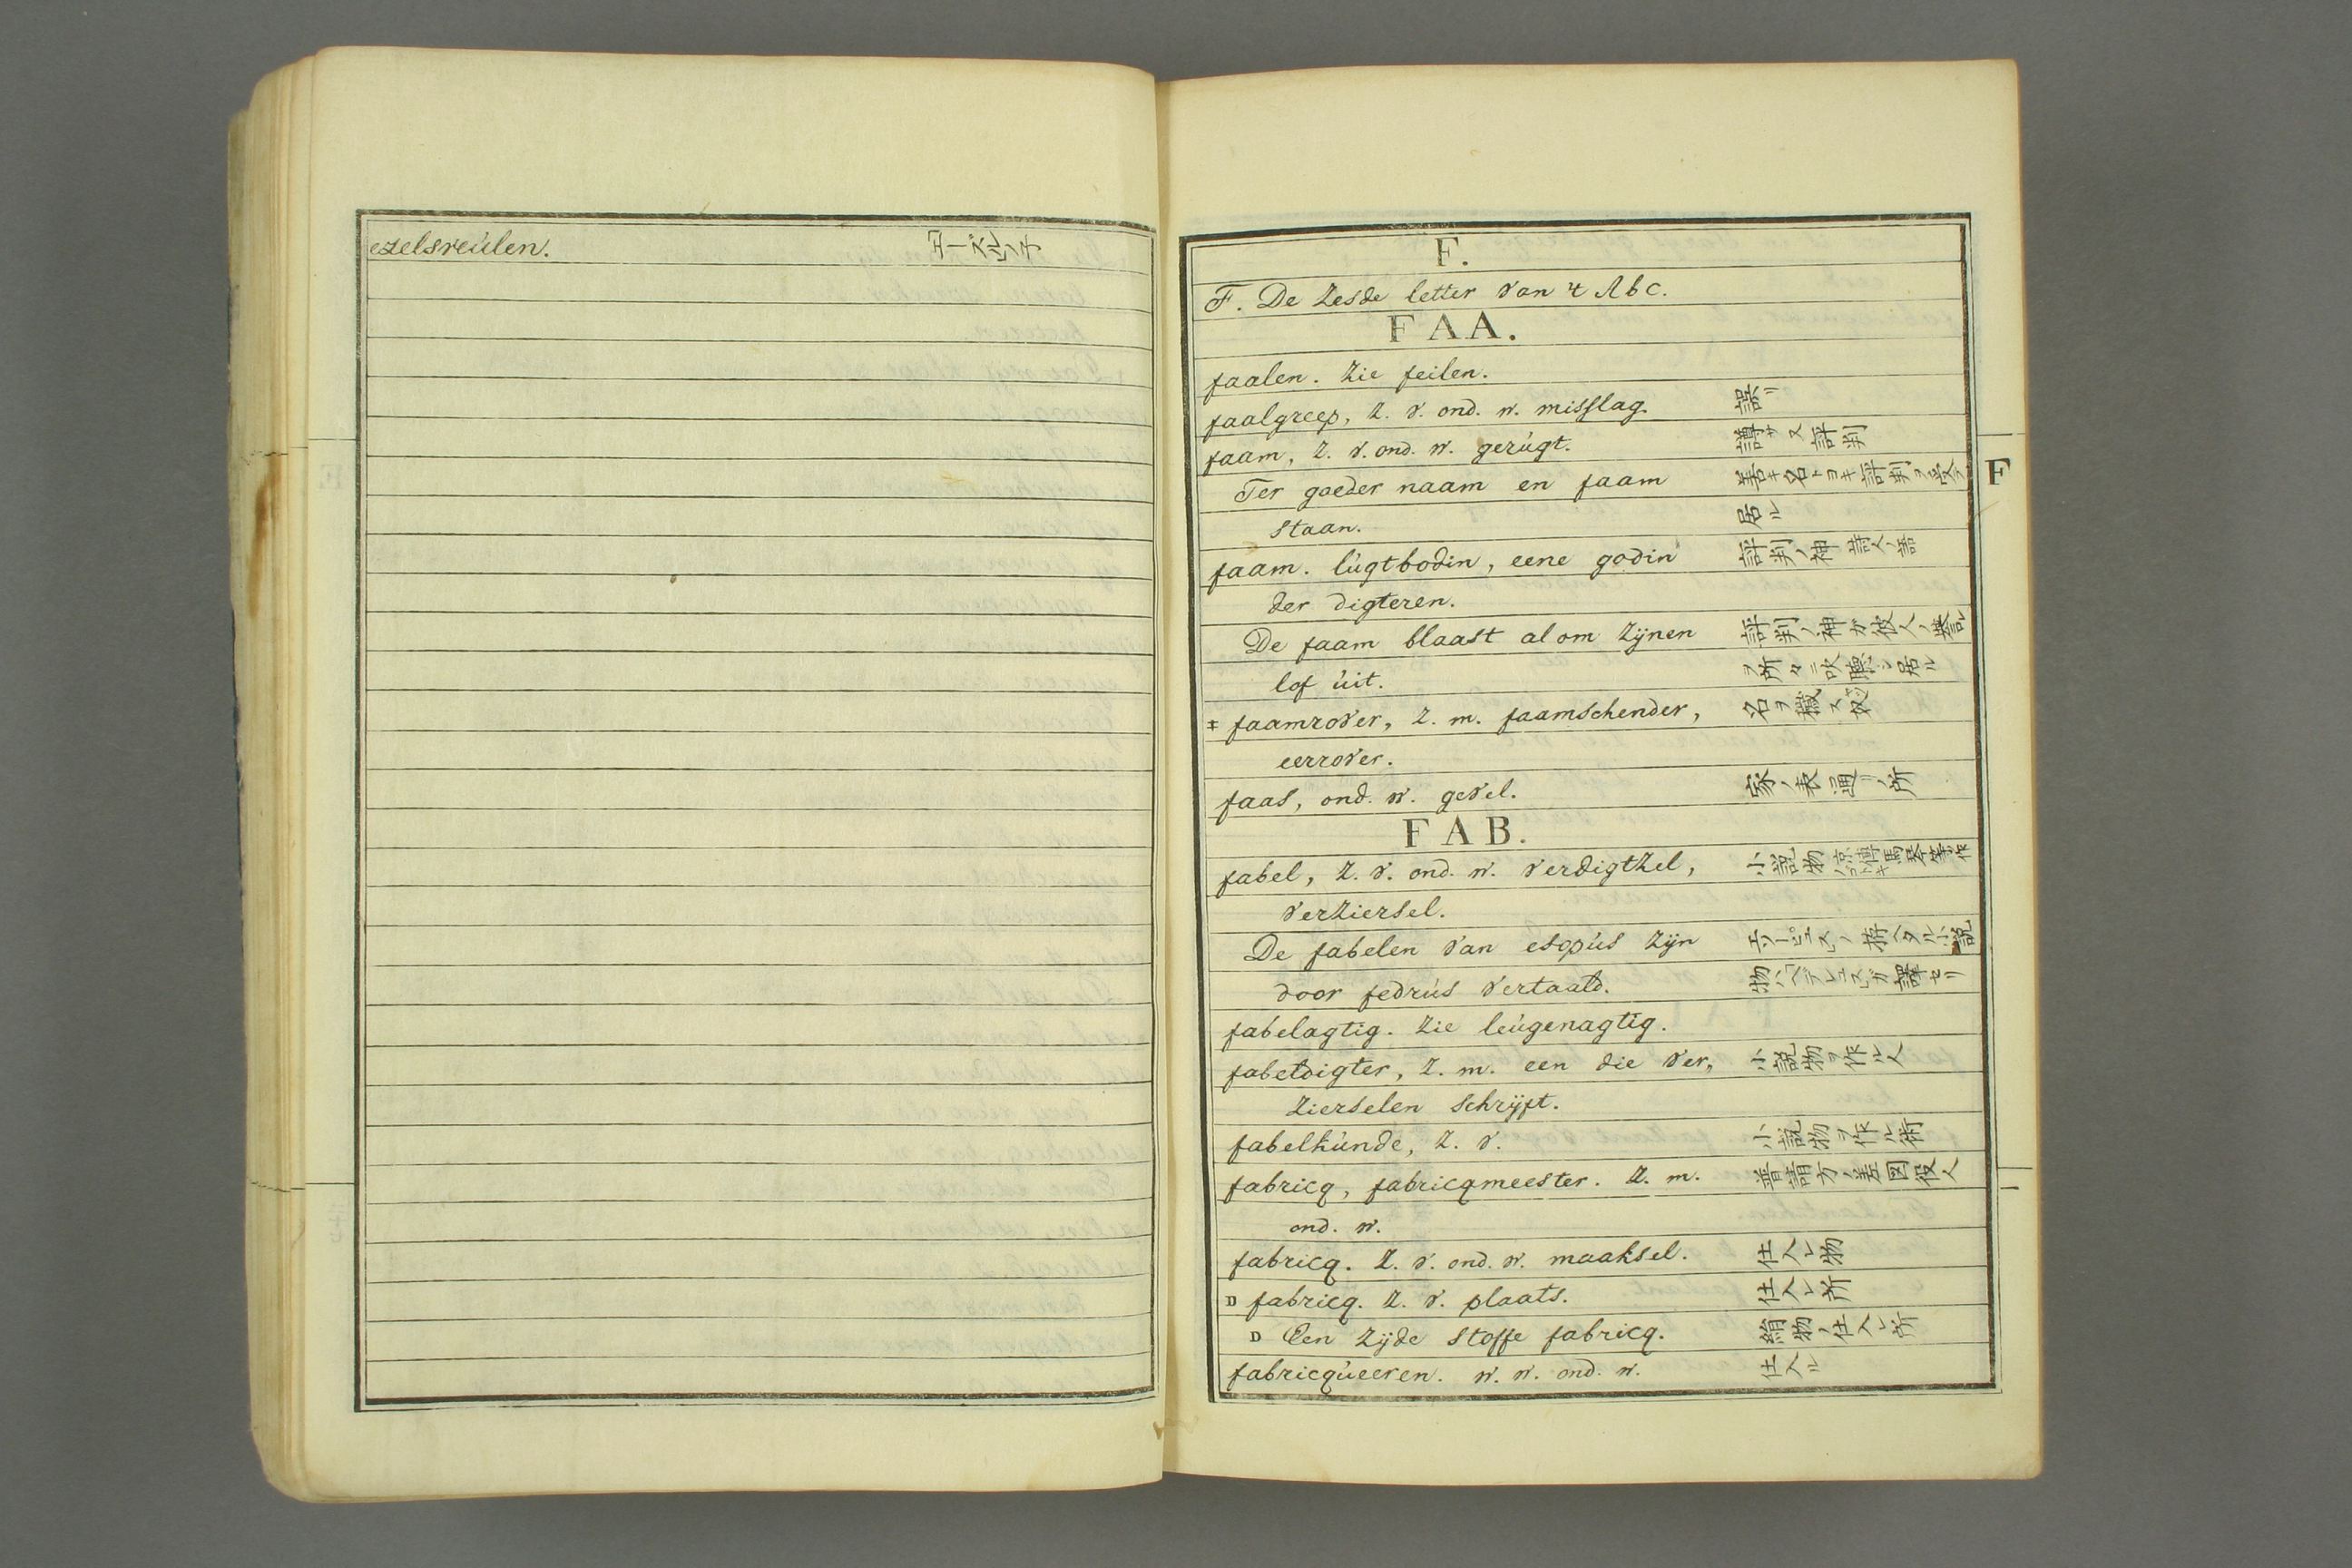 ezelsreúlen.
F.
F. De zesde letter van 't Abc.
FAA.
faalen. Zie feilen.
faalgreep, z. v. ond. w. misslag. 誤リ
faam, z. v. ond. w. gerúgt. 評判
Ter goeder naam en faam 善キ名トヨキ評判ヲ受テ
staan. 居ル
faam. lúgtbodin, eene godin 評判ノ神 詩人ノ語
der digteren.
De faam blaast al om zijnen 評判ノ神ガ彼人ノ
lof úit. ヲ所々ニ吹聴シ居ル
‡ faamrover, z. m. faamschender, 名ヲ穢ス
eerrover.
faas, ond. w. gevel. 家ノ表通リノ所
FAB.
fabel, z. v. ond. w. verdigtzel, 小説物 京傳馬琴等ノ作
verziersel.
De fabelen van esopús zijn ノ拵ヘタル小説
door fedrús vertaald. 物ハ ガ譯セリ
fabelagtig. Zie leúgenagtig.
fabeldigter, z. m. een die ver, 小説物ヲ作ル人
zierselen schrijft.
fabelkúnde, z. v. 小説物ヲ作ル術
fabricq, fabricqmeester. z. m. 普請方ノ差図役人
ond. w.
fabricq. z. v. ond. w. maaksel. 仕入レ物
D fabricq. z. v. plaats. 仕入レ所
D Een zijde stoffe fabricq. 絹物ノ仕入レ所
fabricqúeeren. w. w. ond. w. 仕入ル
F